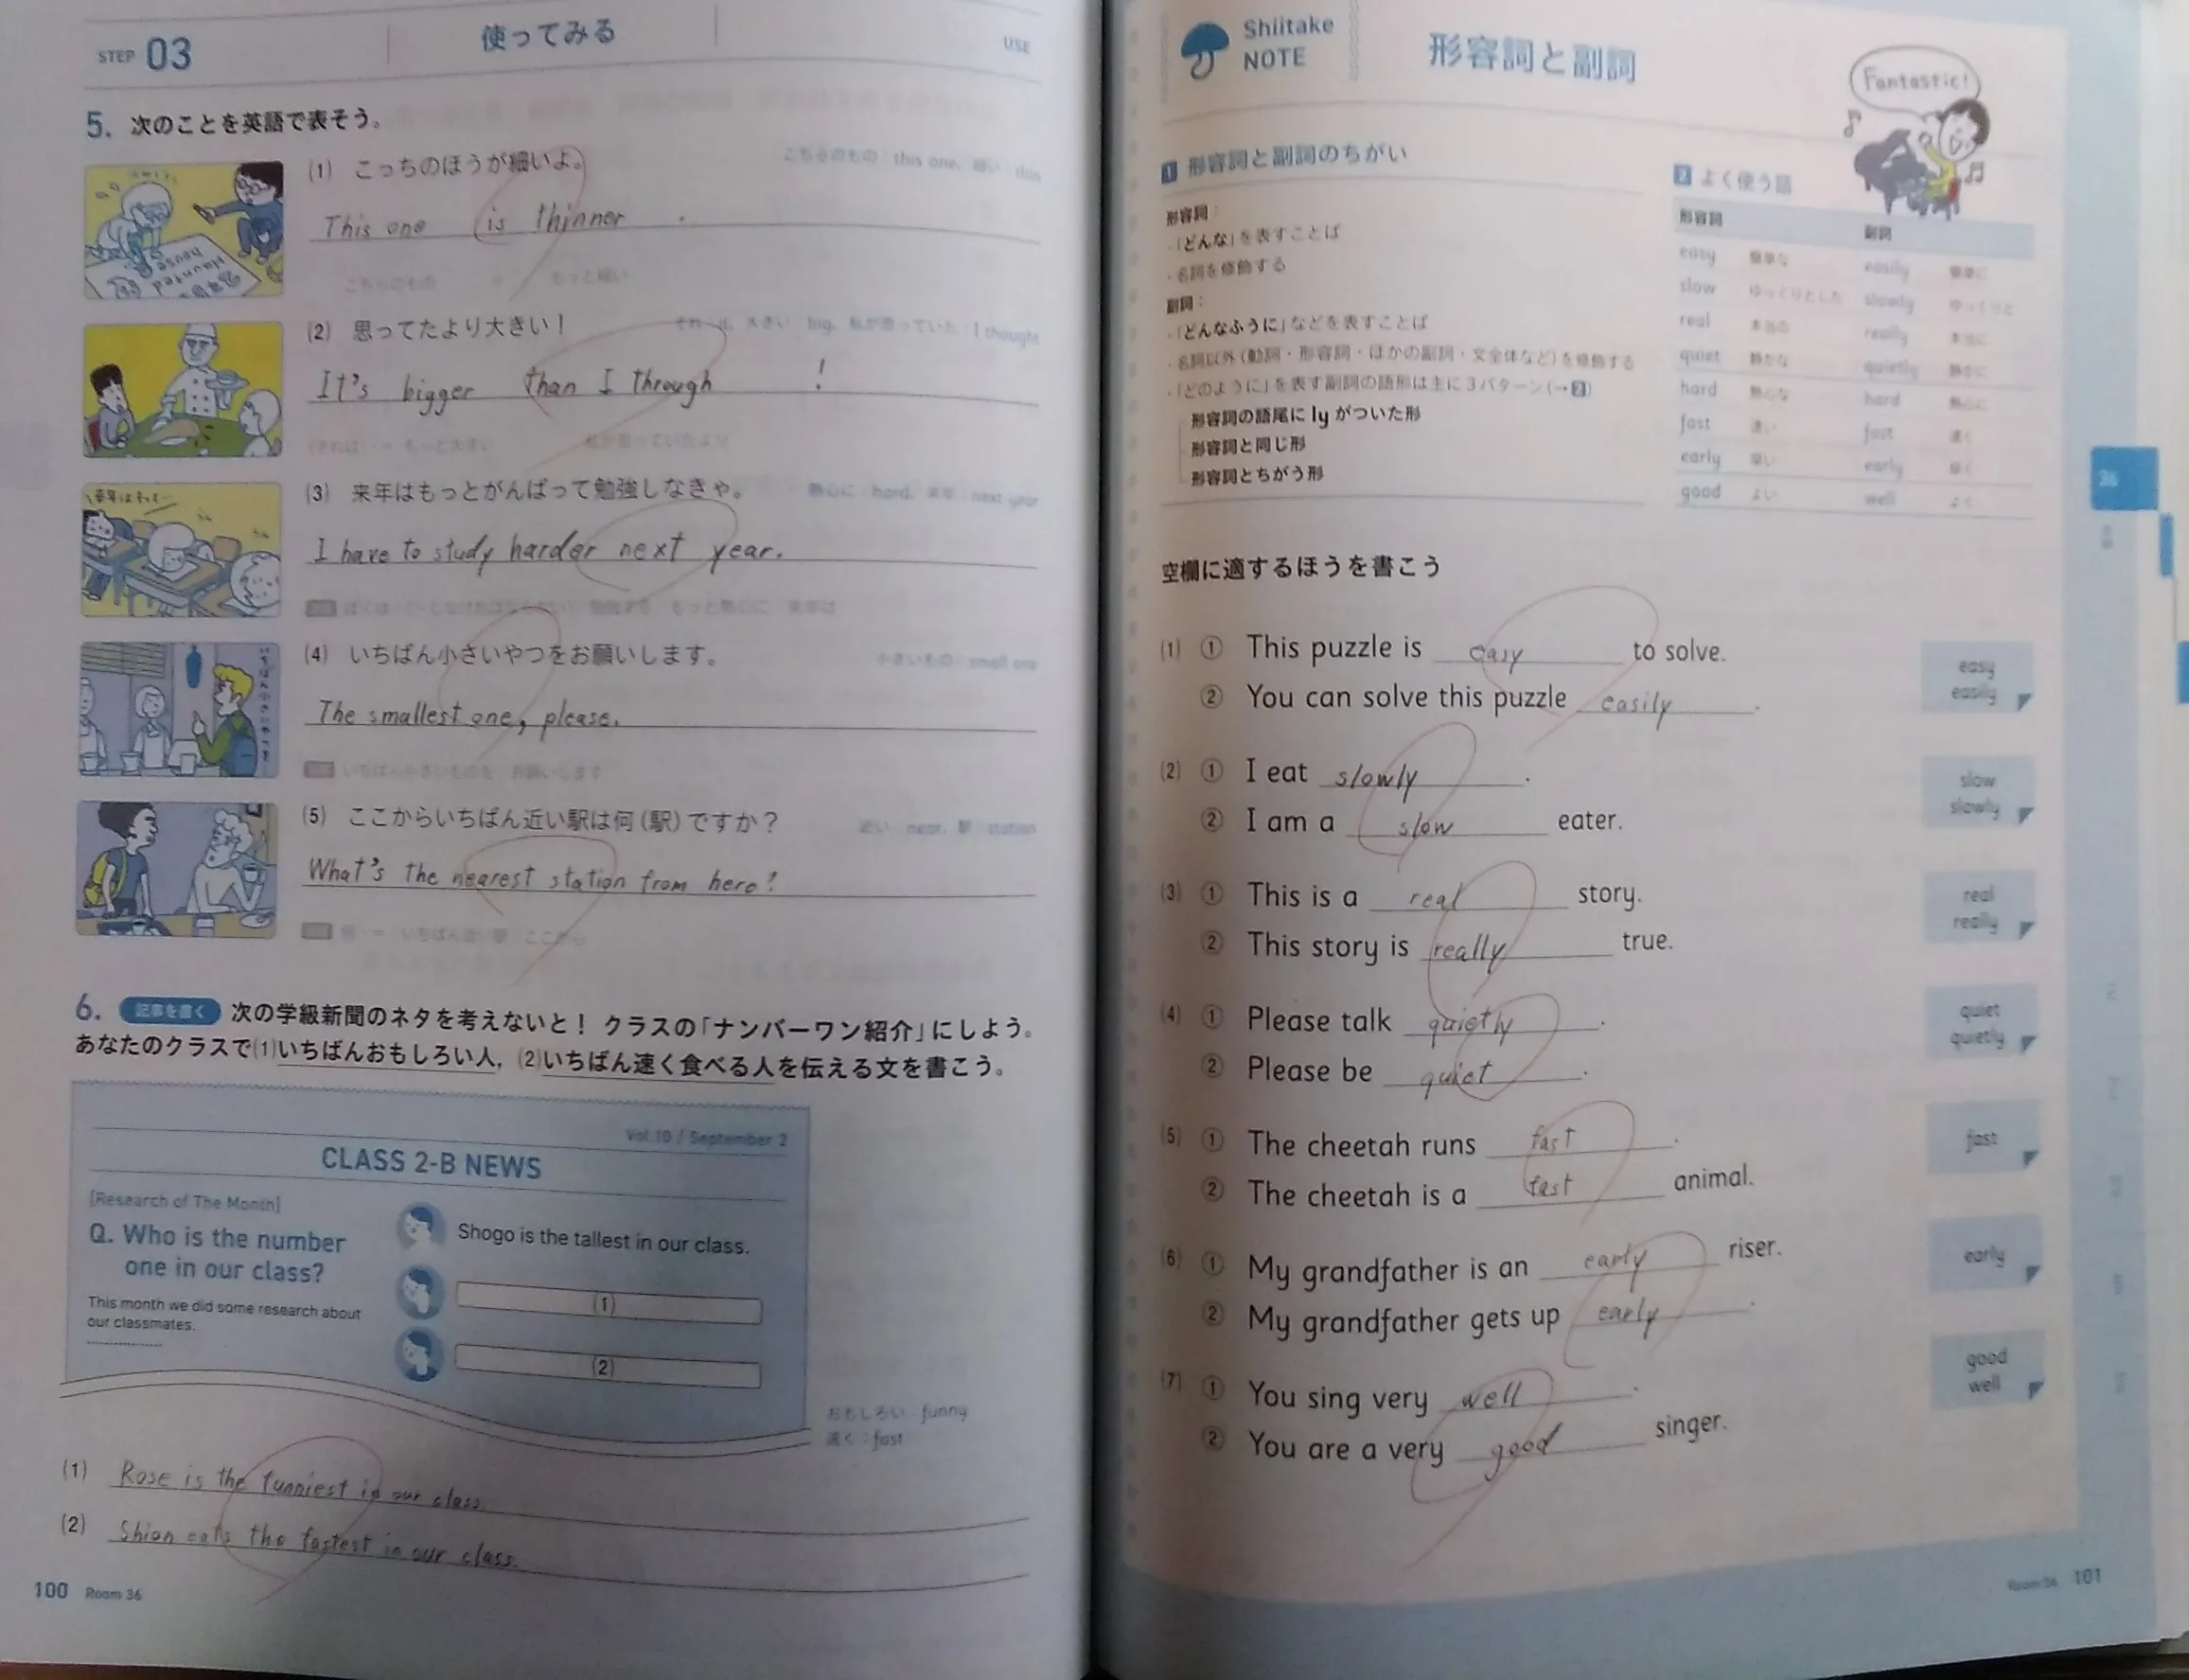 STEP 03
使ってみる
USE
5. 次のことを英語で表そう。
(1) こっちのほうが細いよ。
こちらのもの：this one、細い：thin
This one is thinner .
こちらのもの = もっと細い
(2) 思ってたより大きい！
それ：it、大きい：big、私が思っていた：I thought
It's bigger than I through !
(それは) = もっと大きい 私が思っていたより
(3) 来年はもっとがんばって勉強しなきゃ。
熱心に：hard、来年：next year
I have to study harder next year.
ぼくは 〜しなければならない 勉強する もっと熱心に 来年は
(4) いちばん小さいやつをお願いします。
小さいもの：small one
The smallest one, please.
いちばん小さいものを お願いします
(5) ここからいちばん近い駅は何(駅)ですか？
近い：near、駅：station
What's the nearest station from here?
何 = いちばん近い駅 ここから
6. 記事を書く 次の学級新聞のネタを考えないと！ クラスの「ナンバーワン紹介」にしよう。
あなたのクラスで(1)いちばんおもしろい人，(2)いちばん速く食べる人を伝える文を書こう。
Vol.10 / September 2
CLASS 2-B NEWS
[Research of The Month]
Q. Who is the number
one in our class?
This month we did some research about
our classmates.
Shogo is the tallest in our class.
(1)
(2)
おもしろい：funny
速く：fast
(1) Rose is the funniest in our class.
(2) Shion eats the fastest in our class.
100 Room 36
Shiitake
NOTE
形容詞と副詞
Fantastic!
1 形容詞と副詞のちがい
形容詞：
・「どんな」を表すことば
・名詞を修飾する
副詞：
・「どんなふうに」などを表すことば
・名詞以外(動詞・形容詞・ほかの副詞・文全体など)を修飾する
・「どのように」を表す副詞の語形は主に3パターン(→2)
形容詞の語尾に ly がついた形
形容詞と同じ形
形容詞とちがう形
2 よく使う語
形容詞 副詞
easy 簡単な easily 簡単に
slow ゆっくりとした slowly ゆっくりと
real 本当の really 本当に
quiet 静かな quietly 静かに
hard 熱心な hard 熱心に
fast 速い fast 速く
early 早い early 早く
good よい well よく
36
空欄に適するほうを書こう
(1) ① This puzzle is easy to solve.
② You can solve this puzzle easily .
easy
easily
(2) ① I eat slowly .
② I am a slow eater.
slow
slowly
(3) ① This is a real story.
② This story is really true.
real
really
(4) ① Please talk quietly .
② Please be quiet .
quiet
quietly
(5) ① The cheetah runs fast .
② The cheetah is a fast animal.
fast
(6) ① My grandfather is an early riser.
② My grandfather gets up early .
early
(7) ① You sing very well .
② You are a very good singer.
good
well
Room 36 101